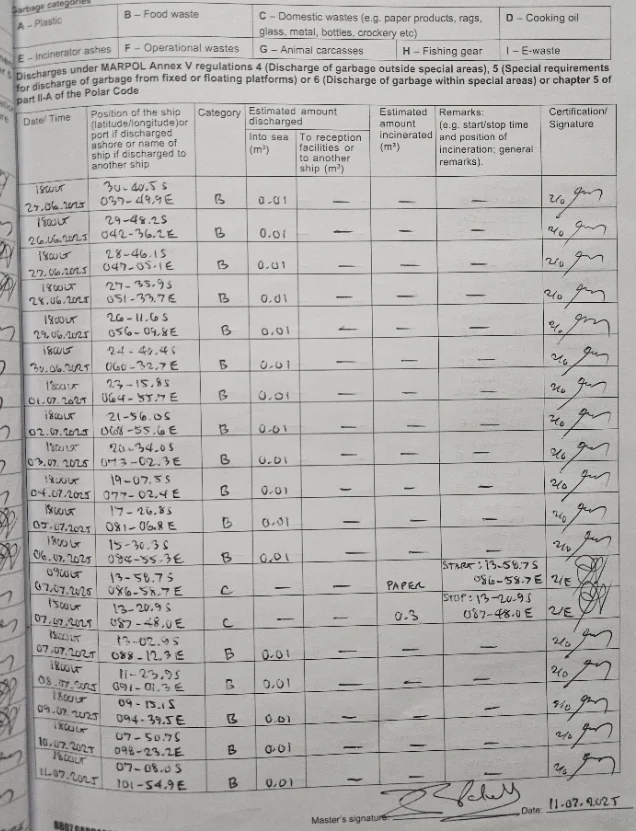 Garbage categories
A – Plastic
B – Food waste
C – Domestic wastes (e.g. paper products, rags, glass, metal, bottles, crockery etc)
D – Cooking oil
E – Incinerator ashes
F – Operational wastes
G – Animal carcasses
H – Fishing gear
I – E-waste
Discharges under MARPOL Annex V regulations 4 (Discharge of garbage outside special areas), 5 (Special requirements
for discharge of garbage from fixed or floating platforms) or 6 (Discharge of garbage within special areas) or chapter 5 of
part II-A of the Polar Code
Date/ Time
Position of the ship (latitude/longitude)or port if discharged ashore or name of ship if discharged to another ship
Category
Estimated amount discharged
Into sea (m³)
To reception facilities or to another ship (m³)
Estimated amount incinerated (m³)
Remarks: (e.g. start/stop time and position of incineration; general remarks).
Certification/ Signature
1800LT 30-40.5 S
25.06.2025 037-49.9E B 0.01 — — — 2/0
1800LT 29-48.2S
26.06.2025 042-36.2E B 0.01 — — — 2/0
1800LT 28-46.1S
27.06.2025 047-05.1E B 0.01 — — — 2/0
1800LT 27-35.9S
28.06.2025 051-33.7E B 0.01 — — — 2/0
1800LT 26-11.6S
29.06.2025 056-09.8E B 0.01 — — — 2/0
1800LT 24-40.4S
30.06.2025 060-32.7E B 0.01 — — — 2/0
1800LT 23-15.8S
01.07.2025 064-55.7E B 0.01 — — — 2/0
1800LT 21-56.0S
02.07.2025 068-55.6E B 0.01 — — — 2/0
1800LT 20-34.0S
03.07.2025 073-02.3E B 0.01 — — — 2/0
1800LT 19-07.5S
04.07.2025 077-02.4E B 0.01 — — — 2/0
1800LT 17-26.8S
05.07.2025 081-06.8E B 0.01 — — — 2/0
1800LT 15-30.3S
06.07.2025 084-55.3E B 0.01 — — — 2/0
0900LT 13-58.7S START: 13-58.7S
07.07.2025 086-58.7E C — — PAPER 086-58.7E 2/E
1500LT 13-20.9S STOP: 13-20.9S
07.07.2025 087-48.0E C — — 0.3 087-48.0E 2/E
1800LT 13-02.9S
07.07.2025 088-12.3E B 0.01 — — — 2/0
1800LT 11-23.9S
08.07.2025 091-01.3E B 0.01 — — — 2/0
1800LT 09-15.1S
09.07.2025 094-39.5E B 0.01 — — — 2/0
1800LT 07-50.7S
10.07.2025 098-23.2E B 0.01 — — — 2/0
1800LT 07-08.0S
11.07.2025 101-54.9E B 0.01 — — — 2/0
Master's signature: Date: 11.07.2025